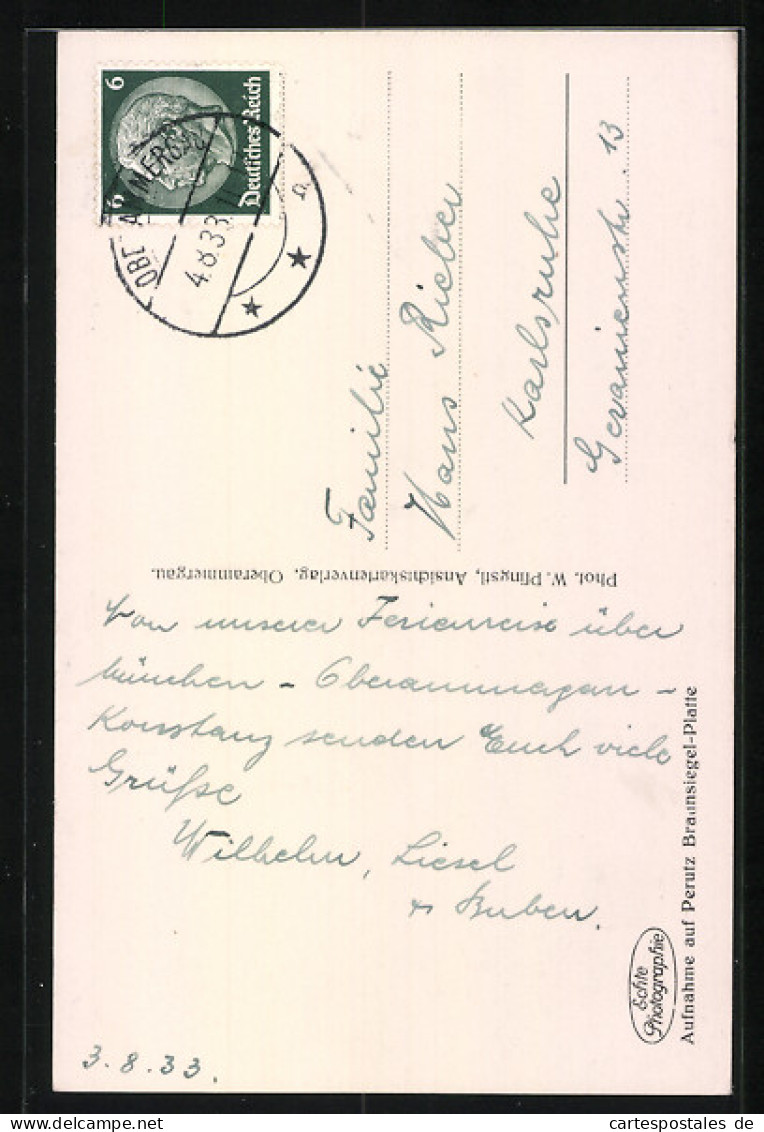 6
6
Deutsches Reich
4.8.33.
n
Familie
Hans Rieber
Karlsruhe
13
Phot. W. Pfingstl, Ansichtskartenverlag, Oberammergau.
Von unserer Ferienreise über
München - Oberammergau -
Konstanz senden Euch viele
Grüße
Wilhelm, Liesel
+ Buben.
3.8.33.
Echte
Photographie
Aufnahme auf Perutz Braunsiegel-Platte
cartespostales de